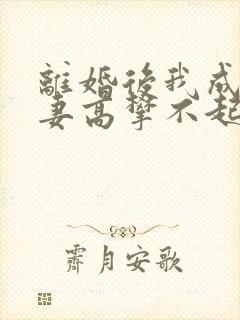 離婚後我成
妻高攀不起
霽月安歌